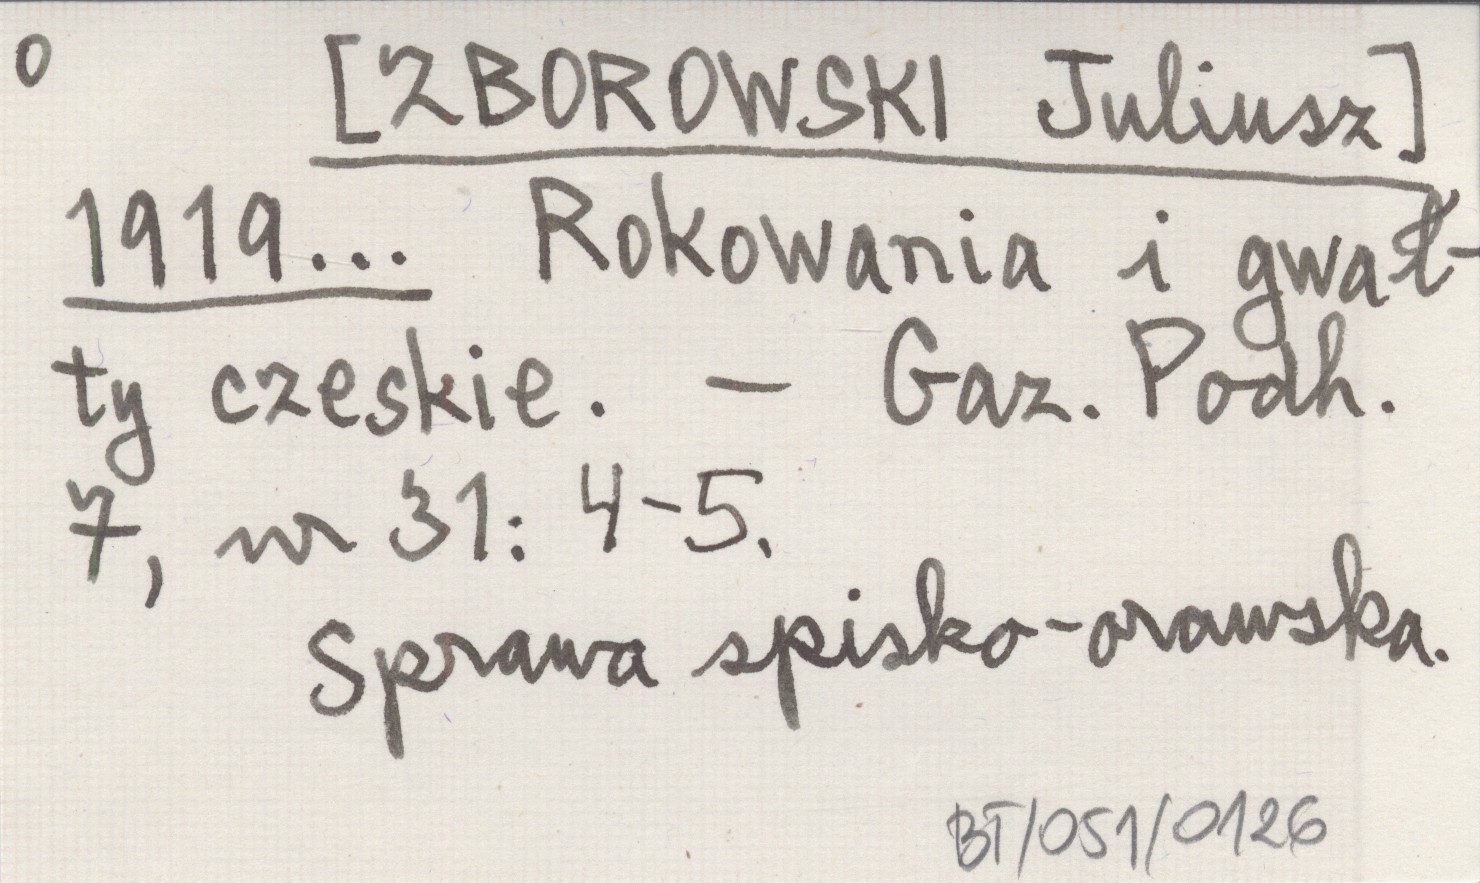 o [ZBOROWSKI Juliusz]
1919... Rokowania i gwał-
ty czeskie. – Gaz. Podh.
7, nr 31: 4-5.
Sprawa spisko-orawska.
BT/051/0126